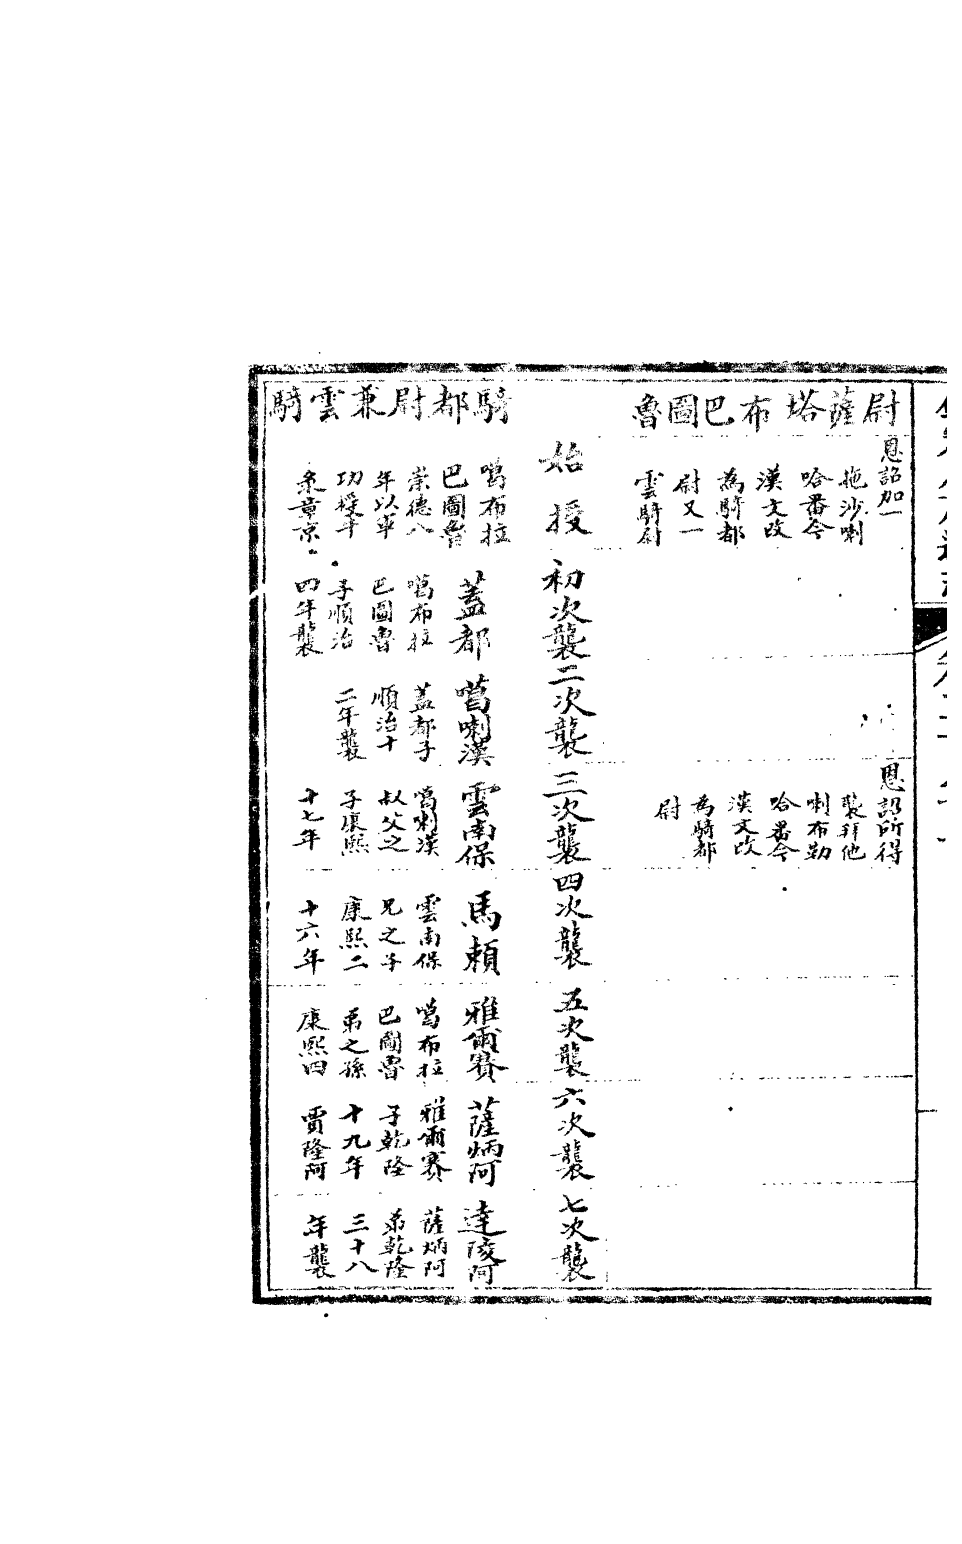 尉薩塔布巴圖魯
恩詔加一
拖沙喇
哈番今
漢文改
為騎都
尉又一
雲騎尉
恩詔所得
襲拜他
喇布勒
哈番今
漢文改
為騎都
尉
始授
初次襲
二次襲
三次襲
四次襲
五次襲
六次襲
七次襲
騎都尉兼雲騎
噶布拉
巴圖魯
崇德八
年以軍
功授牛
彔章京
蓋都
噶布拉
巴圖魯
子順治
四年襲
噶喇漢
蓋都子
順治十
二年襲
雲南保
噶喇漢
叔父之
子康熙
十七年
馬賴
雲南保
兄之子
康熙二
十六年
雅爾賽
噶布拉
巴圖魯
弟之孫
康熙四
薩炳阿
雅爾賽
子乾隆
十九年
賈隆阿
達陵阿
薩炳阿
弟乾隆
三十八
年襲